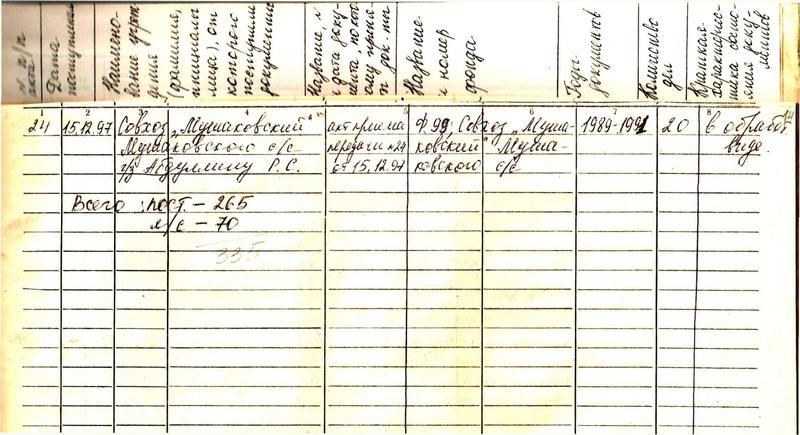 N п/п
Дата поступления
Наименование учреждения (фамилия, инициалы лица), от которого поступили документы
Название, N и дата документа, по которому приняты док-ты
Название и номер фонда
Годы документов
Количество дел
Краткая характеристика состояния документов
1 2 3 4 5 6 7 8
24 15.12.97 Совхоз „Мушаковский" акт приема Ф.99, Совхоз „Муша- 1989-1991 20 в обработ.
Мушаковского с/с передачи N24 ковский" Муша- виде.
ч/з Абдуллину Р.С. от 15.12.97 ковского с/с
Всего: пост. – 265
л/с – 70
335